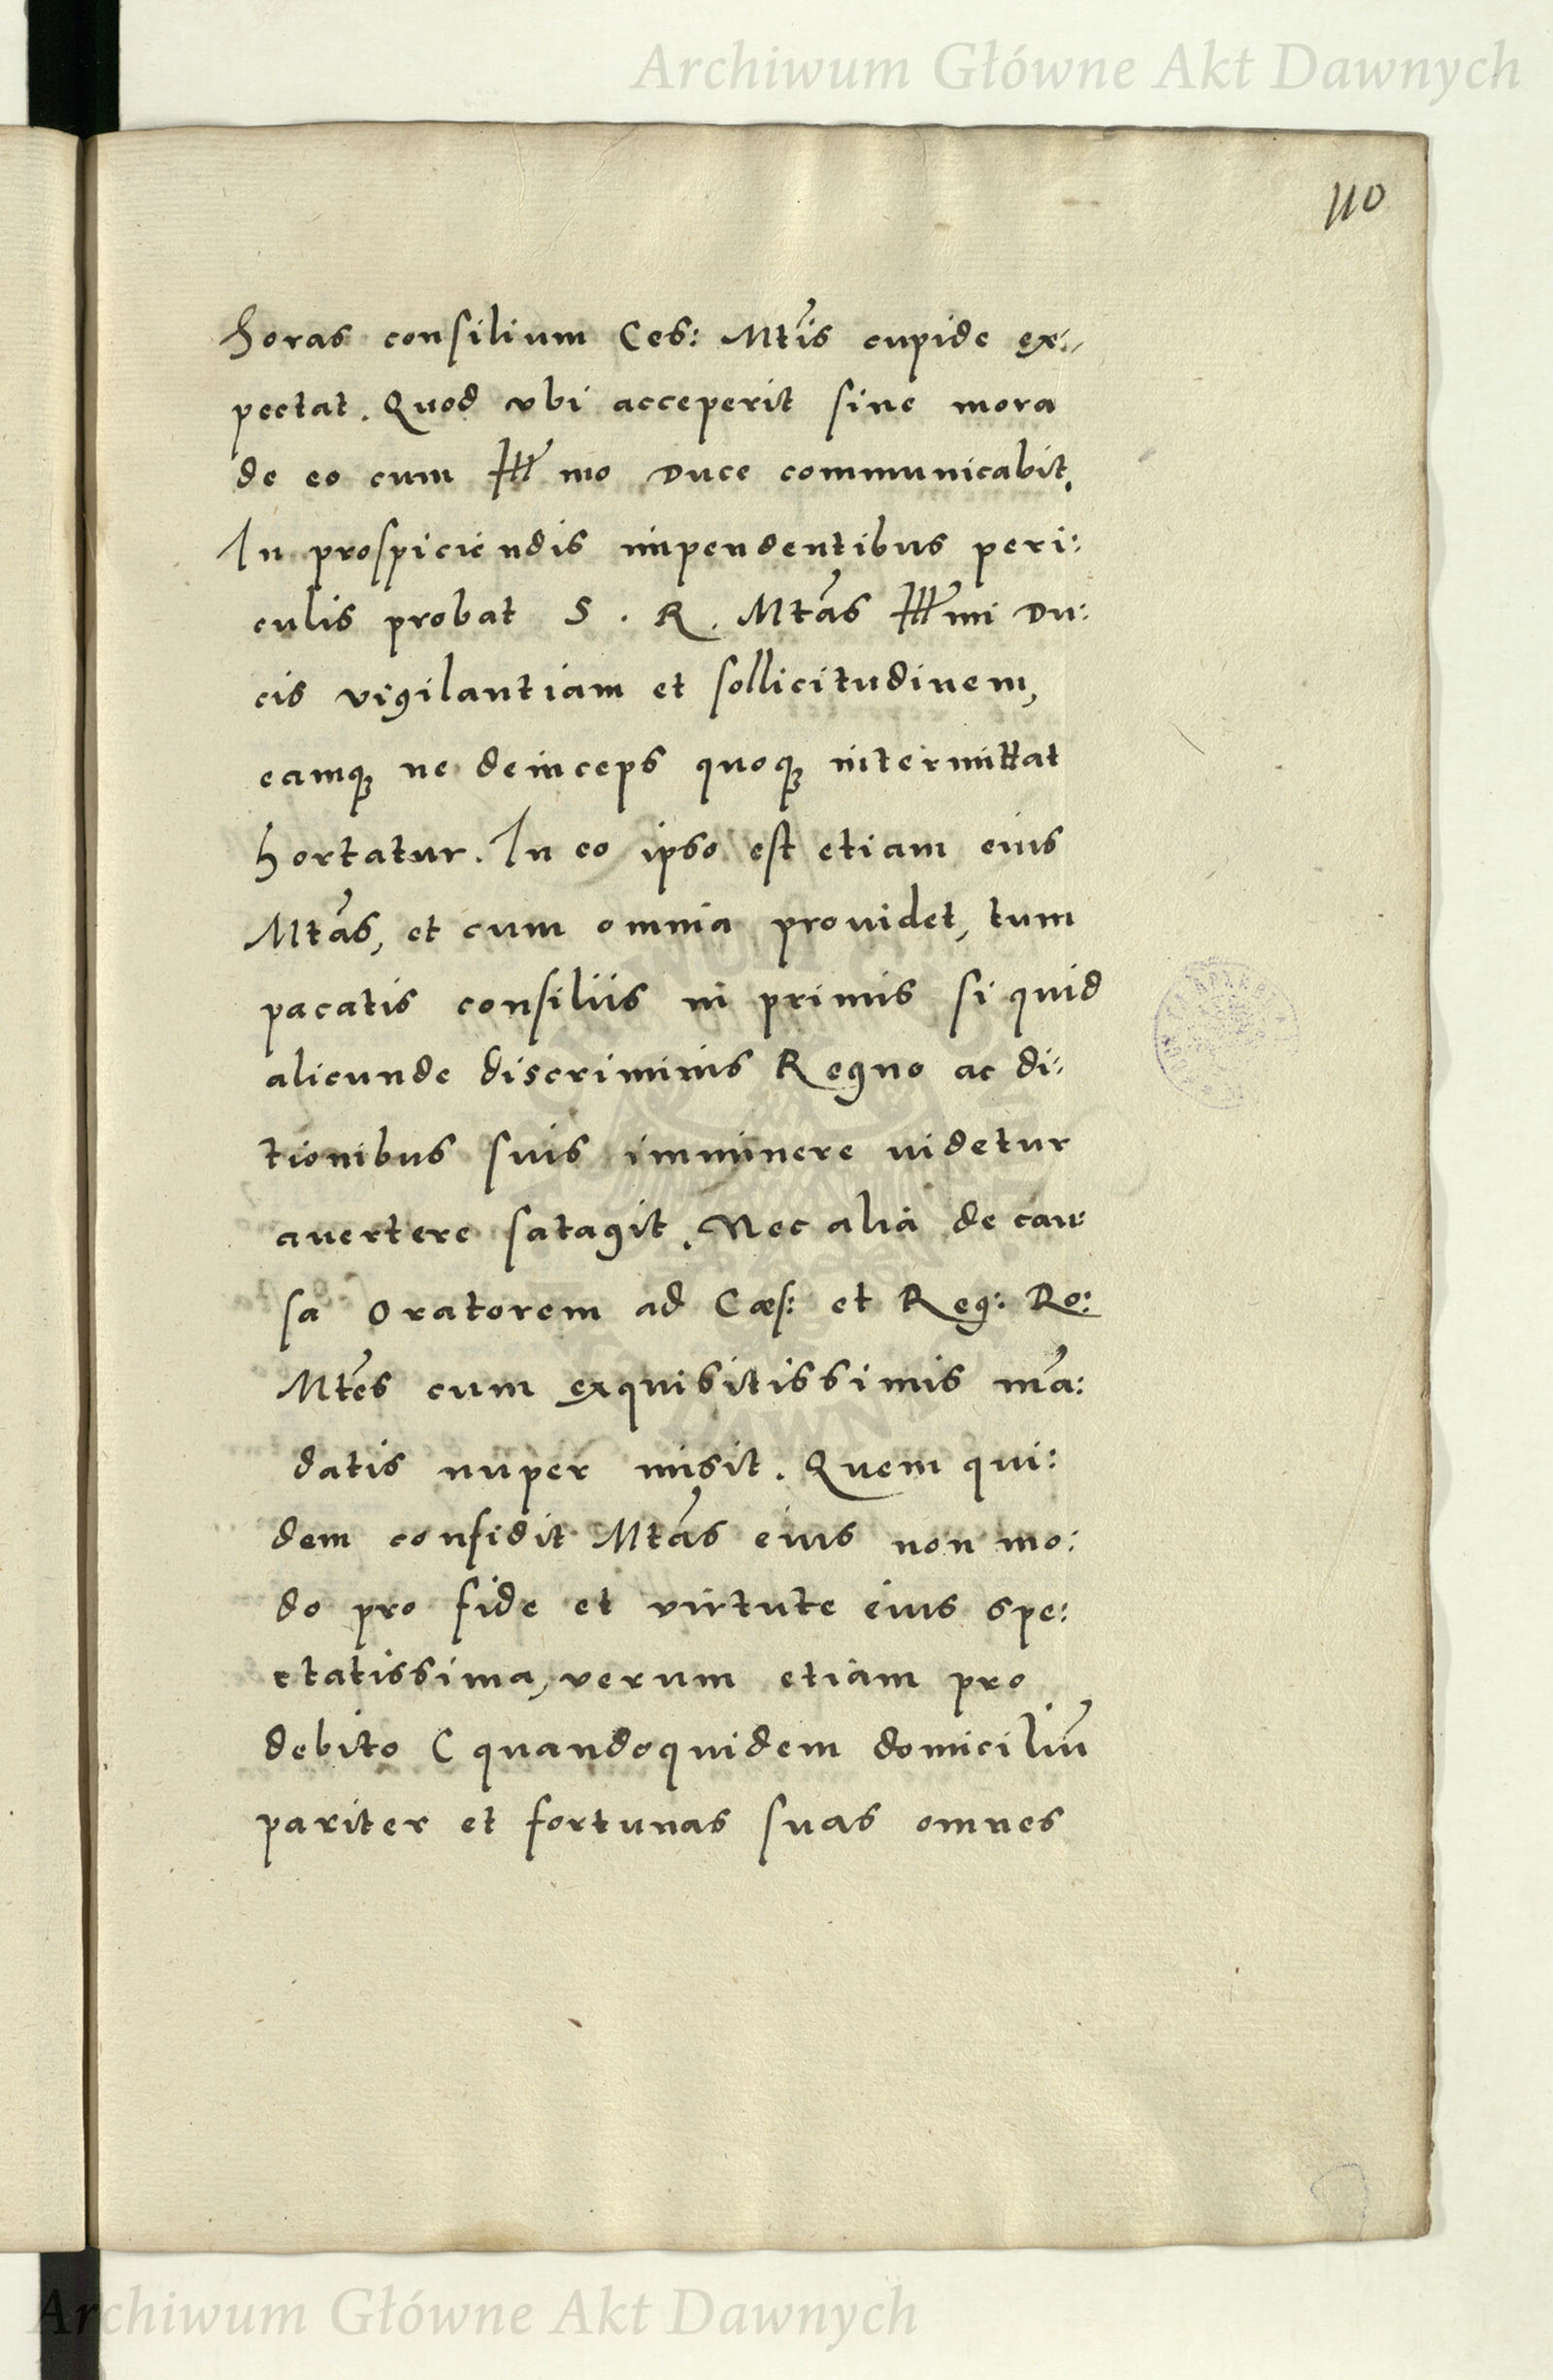 Archiwum Główne Akt Dawnych
110
horas consilium Ces: Mtis cupide ex:
pectat. Quod vbi acceperit sine mora
de eo cum Ill mo Duce communicabit.
In prospiciendis impendentibus peri:
culis probat S. R. Mtas Illmi Du:
cis vigilantiam et sollicitudinem,
eamq ne deinceps quoq intermittat
hortatur. In eo ipso est etiam eius
Mtas, et cum omnia prouidet, tum
pacatis consiliis in primis si quid
alicunde discriminis Regno ac di:
tionibus suis imminere uidetur
auertere satagit. Nec alia de cau:
sa Oratorem ad Cæs: et Reg: Ro:
Mtes cum exquisitissimis mā:
datis nuper misit. Quem qui:
dem confidit Mtas eius non mo:
do pro fide et virtute eius spe:
ctatissima, verum etiam pro
debito ( quandoquidem domiciliū
pariter et fortunas suas omnes
Archiwum Główne Akt Dawnych